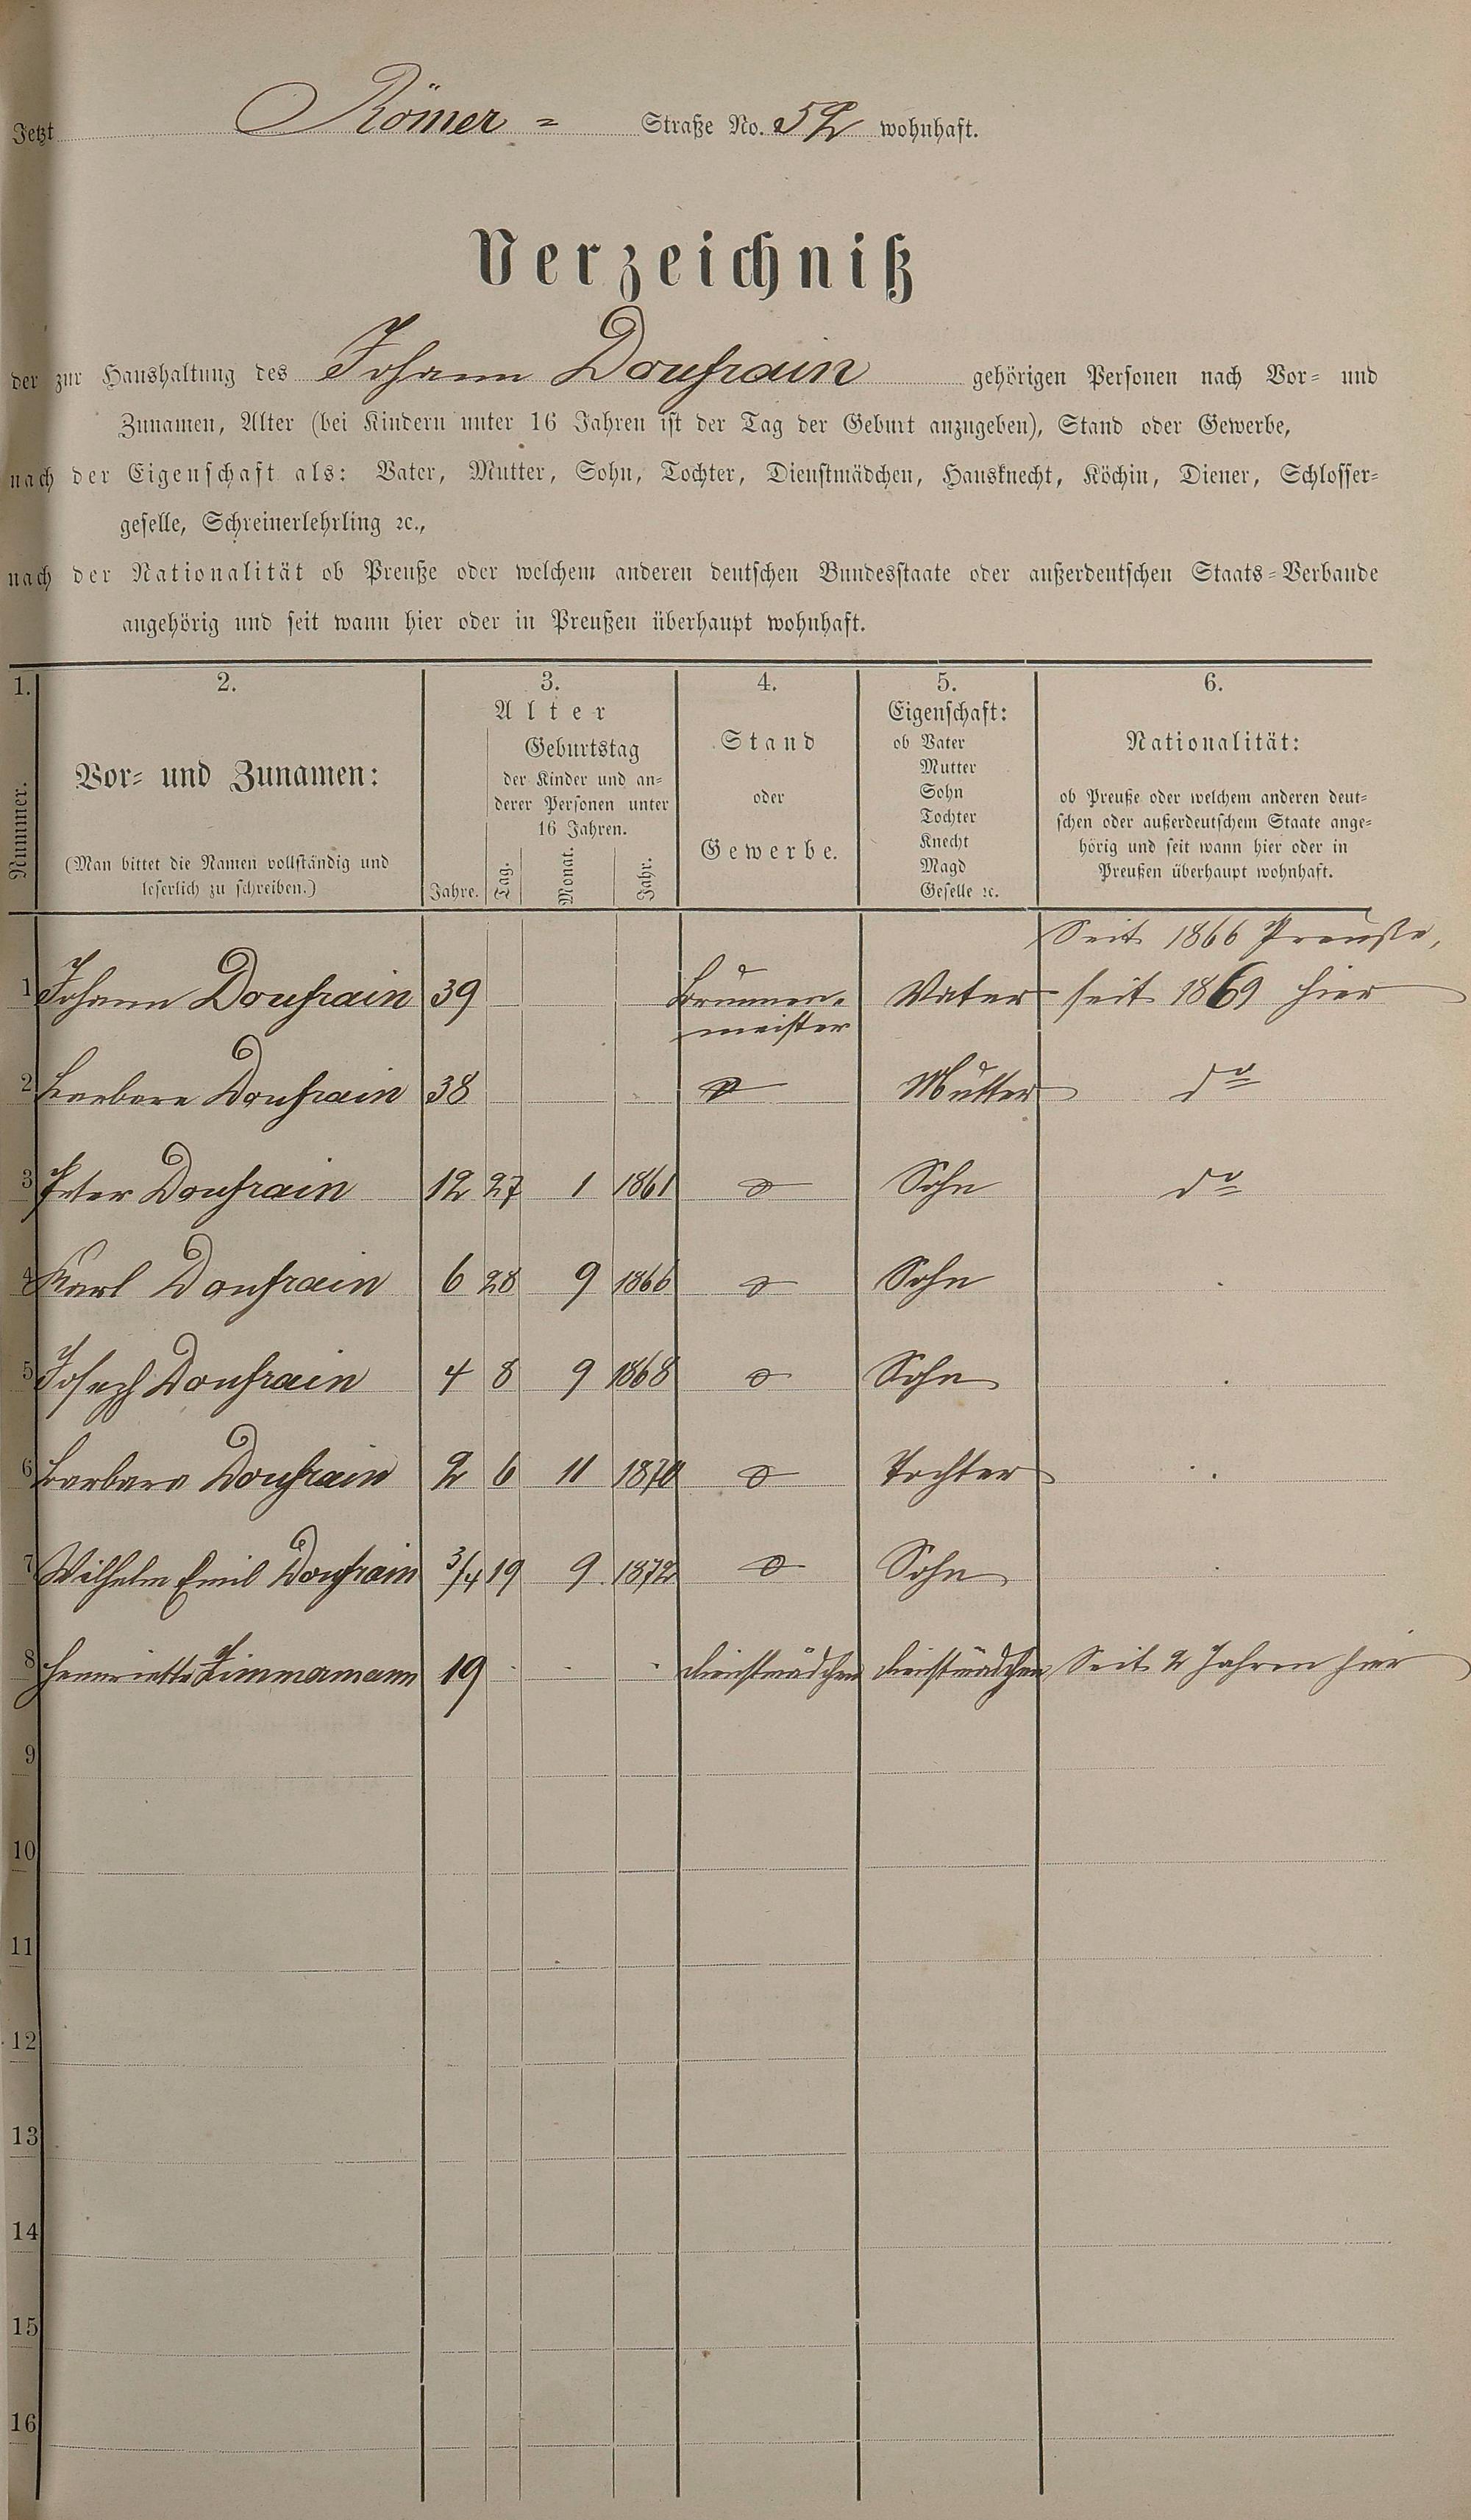 Jetzt Römer= Straße No. 52 wohnhaft.
Verzeichniß
der zur Haushaltung des Johann Doufrain gehörigen Personen nach Vor= und
Zunamen, Alter (bei Kindern unter 16 Jahren ist der Tag der Geburt anzugeben), Stand oder Gewerbe,
nach der Eigenschaft als: Vater, Mutter, Sohn, Tochter, Dienstmädchen, Hausknecht, Köchin, Diener, Schlosser=
geselle, Schreinerlehrling ꝛc.,
nach der Nationalität ob Preuße oder welchem anderen deutschen Bundesstaate oder außerdeutschen Staats=Verbande
angehörig und seit wann hier oder in Preußen überhaupt wohnhaft.
1. 2. 3. 4. 5. 6.
Nummer.
Vor= und Zunamen:
(Man bittet die Namen vollständig und
leserlich zu schreiben.)
Alter
Geburtstag
der Kinder und an=
derer Personen unter
16 Jahren.
Jahre. Tag. Monat. Jahr.
Stand
oder
Gewerbe.
Eigenschaft:
ob Vater
Mutter
Sohn
Tochter
Knecht
Magd
Geselle ꝛc.
Nationalität:
ob Preuße oder welchem anderen deut=
schen oder außerdeutschem Staate ange=
hörig und seit wann hier oder in
Preußen überhaupt wohnhaft.
Seit 1866 Preuße,
1 Johann Doufrain 39 Brunnen= Vater seit 1869 hier
meister
2 Barbara Doufrain 38 Mutter do
3 Peter Doufrain 12 27 1 1861 Sohn do
4 Karl Doufrain 6 28 9 1866 Sohn
5 Joseph Doufrain 4 8 9 1868 Sohn
6 Barbara Doufrain 2 6 11 1870 Tochter
7 Wilhelm Emil Doufrain 3/4 19 9 1872 Sohn
8 Henriette Zimmermann 19 Dienstmädchen Dienstmädchen Seit 2 Jahren hier
9
10
11
12
13
14
15
16